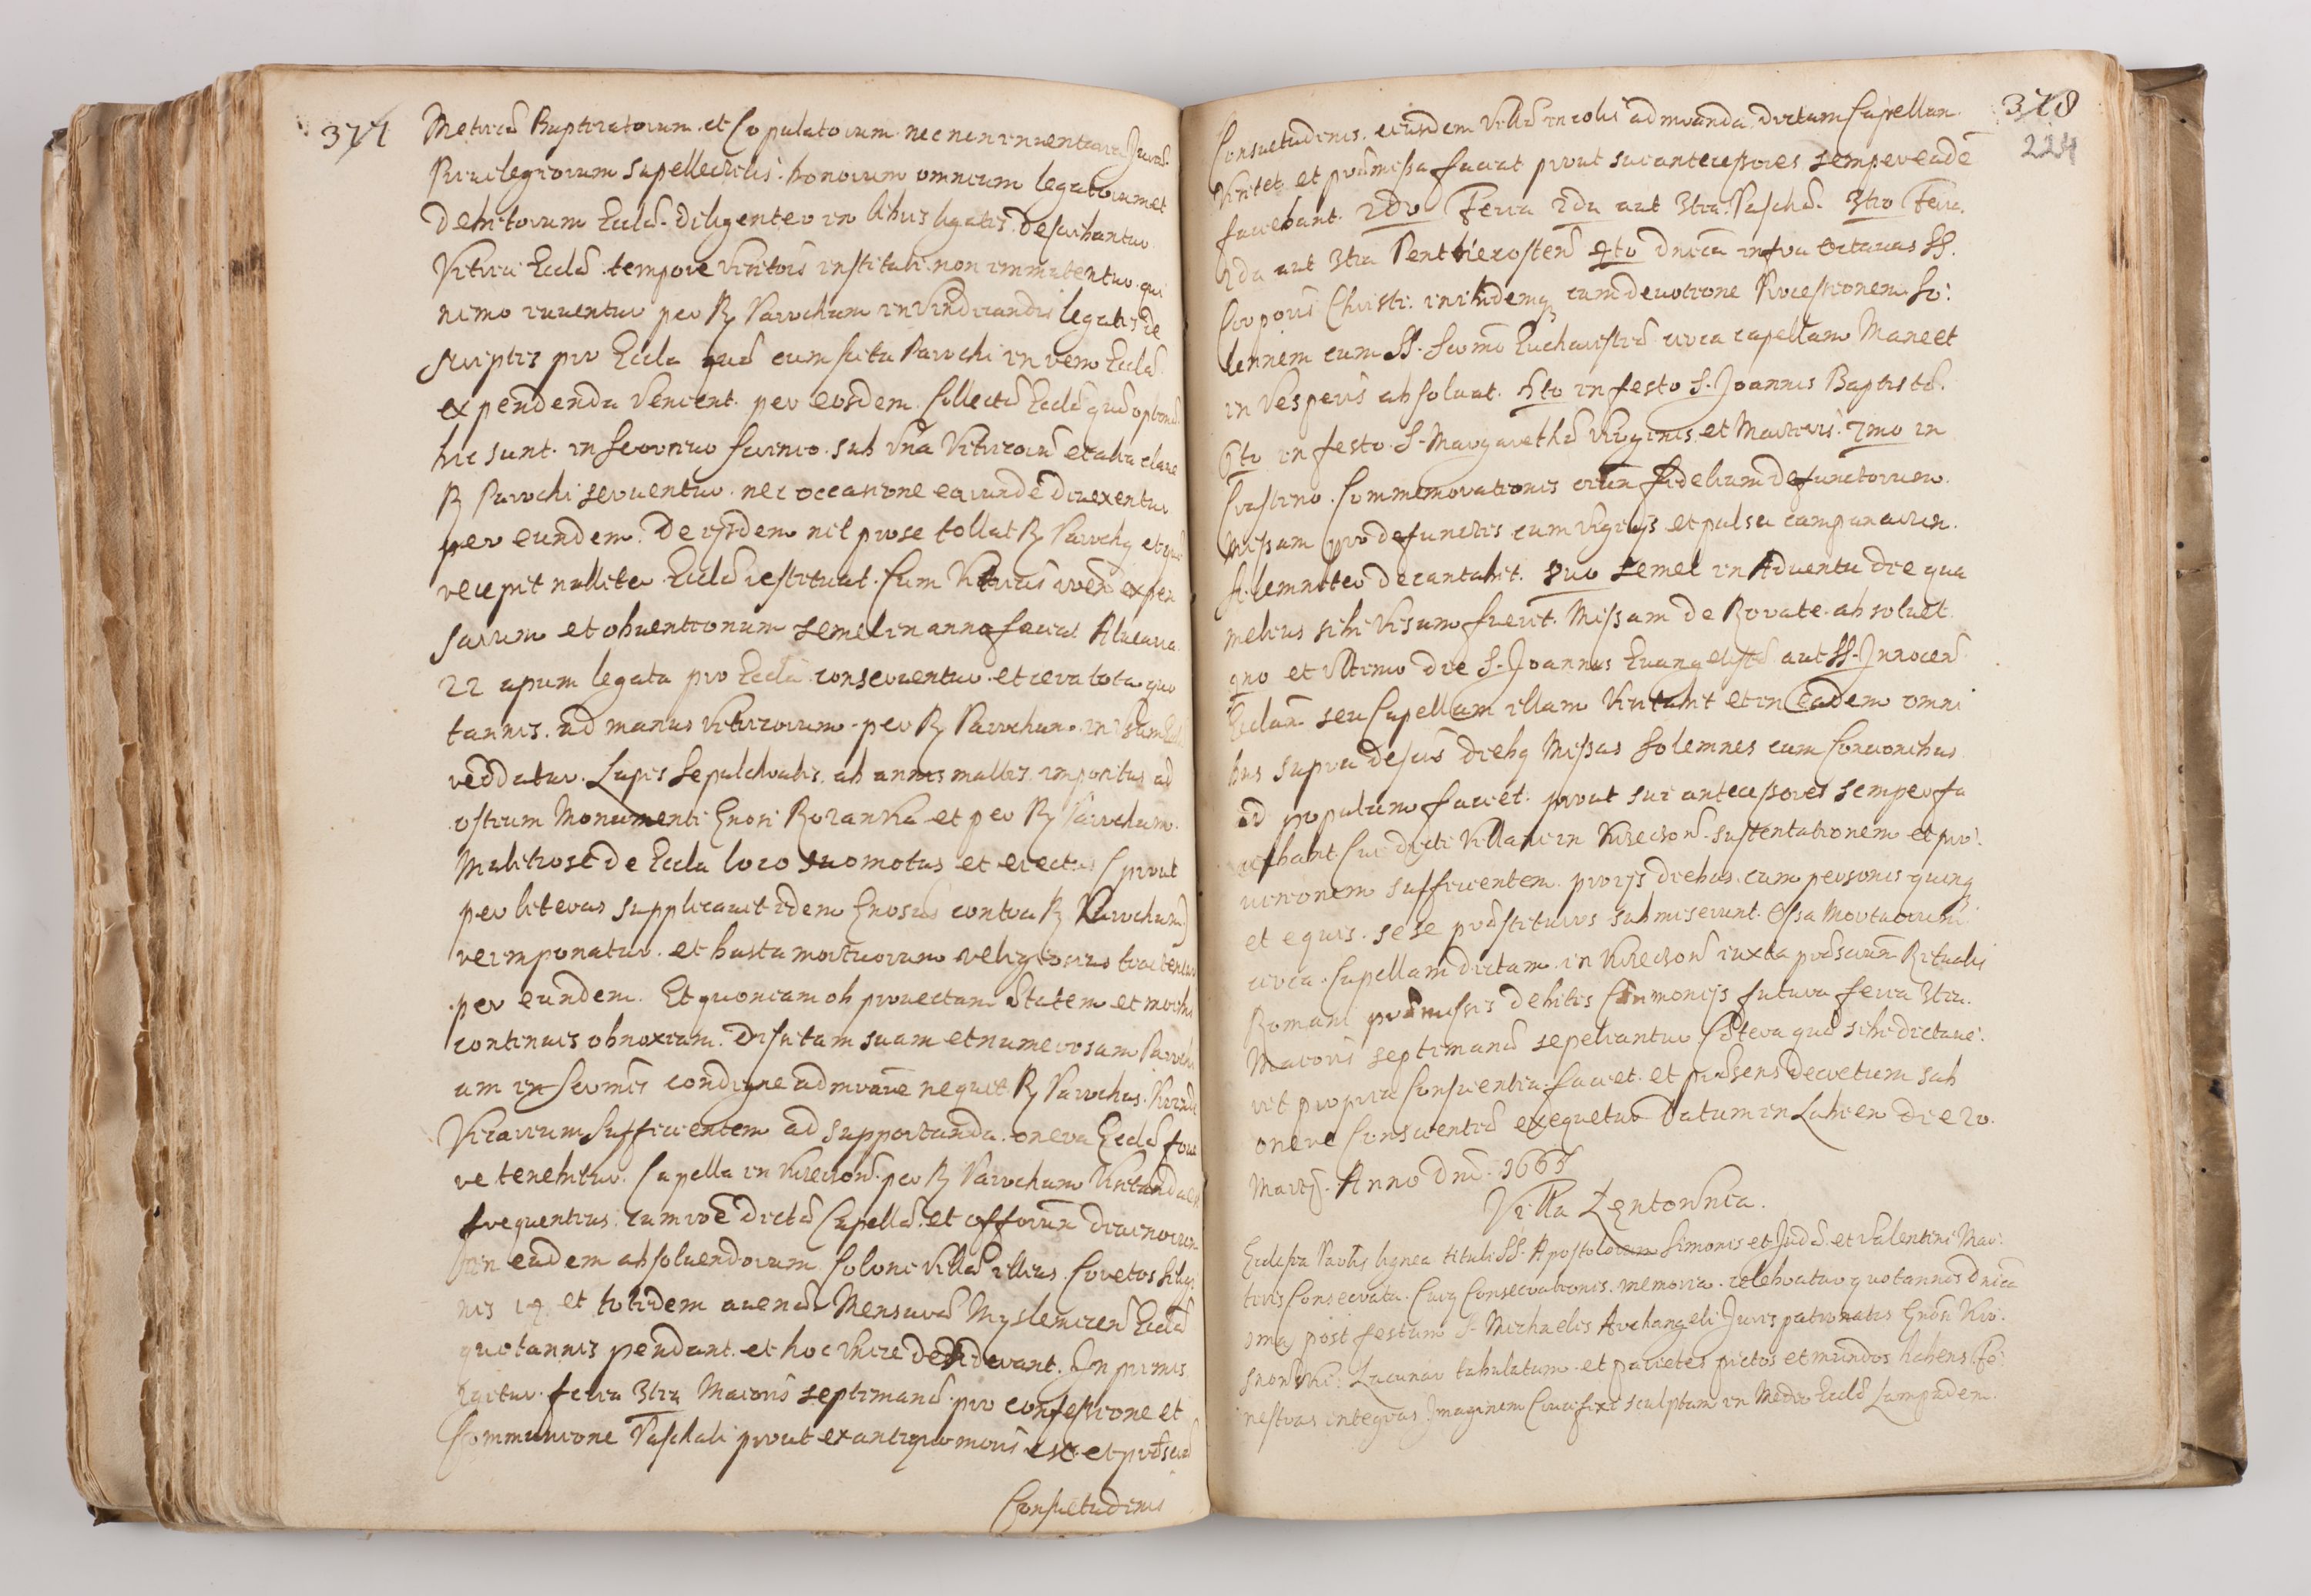 377
Metricæ Baptizatorum et Copulatorum nec non inventaria Jurium
Privilegiorum supellectilis bonorum omnium legatorum et
debitorum Ecclæ diligenter in libris ligatis describantur
Vitrici Ecclæ tempore Visitõis instituti non immutentur qui
nimo iuventur per R Parochum in Vindicandis legatis de
scriptis pro Eccla quæ cum scitu Parochi in rem Ecclæ
expendenda venient per eosdem Collectæ Ecclæ quæ
hic sunt in scrinio sub una Vitricorum et alia clave
R Parochi serventur nec occasione earunde divexentur
per eundem. De ijsdem nil pro se tollat R Parochq et quæ
recepit nulliter Ecclæ restituat. Cum Vitricis rõem expen
sarum et obventionum semel in anno faciat Alvearia
22 apum legata pro Eccla conserventur et cera tota quo
tannis ad manus Vitricorum per R Parochum in usum Ecclæ
reddatur. Lapis sepulchralis ab annis multis impositus ad
ostium Monumenti Gnosi Rozanka et per R Parochum
Malitiose de Eccla loco suo motus et eiectus (prout
per literas supplicavit idem Gnosus contra R Parochum)
reimponatur et busta mortuorum religiosius tractentur
per eundem. Et quoniam ob provectam ætatem et morbis
continuis obnoxiam. Diffusam suam et numerosam Parochi
am in Scõmis condigne admĩare nequit R Parochus
Vicarium sufficientem ad supportanda onera Ecclæ fove
re tenebitur. Capella in per R Parochum Visitanda est
frequentius cum rõe dictæ Capellæ et offorum divinorum
in eadem absolvendorum Coloni Villæ illius Coretos siligi
nis 14 et totidem avenæ Mensuræ Myslenicen Ecclæ
quotannis pendant et hoc unice desiderant. In primis
igitur feria 3tia Maioris septimanæ pro confessione et
Communione Paschali prout ex antiquo moris est et præscæ
Consuetudinis
378
224
Consuetudinis eiusdem Villæ incolis admĩranda dictam Capellam
Visitet et præmissa faciat prout sui antecessores semper eadẽ
faciebant. 2do Feria 2da aut 3tia Paschæ. 3tio Feria
2da aut 3tia Penthecosten 4to Dnica infra Octavas SS.
Corporis Christi inibidemq cum devotione Processionem So:
lennem cum SS. Scõmo Eucharistiæ circa capellam Mane et
in Vesperis absolvat. 5to in festo S. Joannis Baptistæ.
6to in festo S. Margarethæ Virginis et Martiris. 7mo in
Crastino Commemorationis oium fidelium defunctorum
Missam pro defunctis cum vigilijs et pulsu campanarum
solemniter decantabit. 8uo semel in Adventu die qua
melius sibi visum fuerit Missam de Rorate absolvet.
9no et ultimo die S. Joannis Evangelistæ aut SS. Innocen
Ecclam seu Capellam illam Visitabit et in eadem omni
bus supra descris diebq Missas solemnes cum Concionibus
ad populum faciet prout sui antecessores semper fa
ciebant Cui dicti Villani in sustentationem et pro:
visionem sufficientem pro ijs diebus cum personis quinq
et equis sese præstituros submiserunt. Ossa Mortuorum
circa Capellam dictam in iuxta præscrim Ritualis
Romani præmissis debitis Cæremonijs futura feria 3tia
Maioris septimanæ sepeliantur Cætera quæ sibi dictave:
rit propria Conscientia faciet et præsens decretum sub
onere Conscientiæ exequetur Datum in Lubien die 20
Martij Anno Dni 1665
Villa Łętownia.
Ecclesia Parolis lignea tituli SS. Apostolorum Simonis et Judæ et Valentini Mar:
tiris Consecrata. Cuiq Consecrationis memoria celebratur quotannis Dnica
ma post festum S. Michaelis Archangeli Juris patronatus Gnosi
Lacunar tabulatum et parietes pictos et mundos habens Fe:
nestras integras Imaginem Crucifixi sculptam in Medio Ecclæ Lampadem